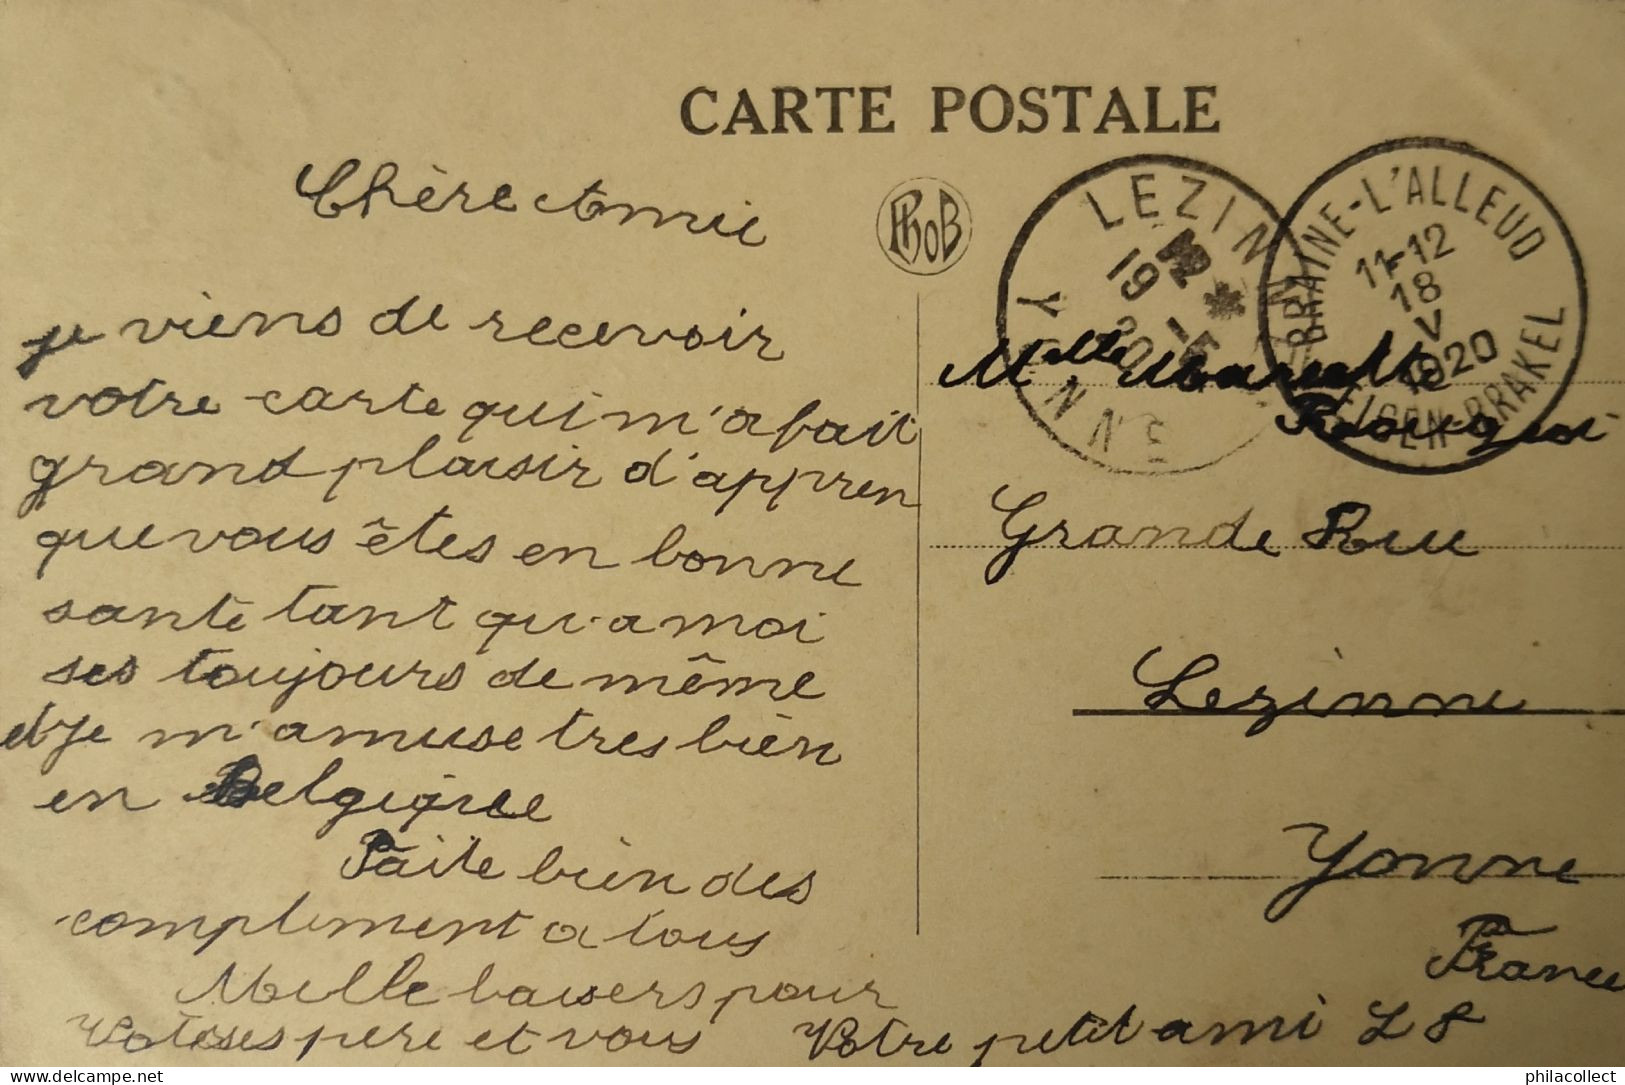 CARTE POSTALE
Chère Amie
PhoB
LEZINNES
YONNE
19
20
BRAINE-L'ALLEUD
11-12
18
V
1920
EIGEN-BRAKEL
je viens de recevoir
votre carte qui m'a fait
grand plaisir d'appren
que vous êtes en bonne
santé tant qu'a moi
ses toujours de même
et je m'amuse tres bièn
en Belgique
Faite bièn des
compliment a tous
Mille baisers pour
pere et vous
Votre petit ami L S
Melle
Grande Rue
Lezinne
Yonne
France
philacollect